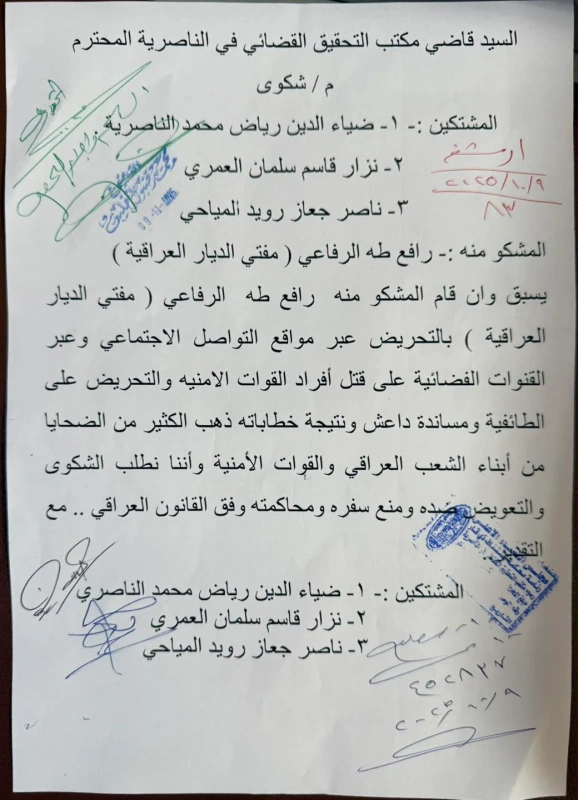 السيد قاضي مكتب التحقيق القضائي في الناصرية المحترم
م / شكوى
المشتكين :- ١- ضياء الدين رياض محمد الناصرية
٢- نزار قاسم سلمان العمري
٣- ناصر جعاز رويد المياحي
٢٠٢٥/١٠/٩
٨٣
المشكو منه :- رافع طه الرفاعي ( مفتي الديار العراقية )
يسبق وان قام المشكو منه رافع طه الرفاعي ( مفتي الديار
العراقية ) بالتحريض عبر مواقع التواصل الاجتماعي وعبر
القنوات الفضائية على قتل أفراد القوات الامنيه والتحريض على
الطائفية ومساندة داعش ونتيجة خطاباته ذهب الكثير من الضحايا
من أبناء الشعب العراقي والقوات الأمنية وأننا نطلب الشكوى
والتعويض ضده ومنع سفره ومحاكمته وفق القانون العراقي .. مع
التقدير
المشتكين :- ١- ضياء الدين رياض محمد الناصري
٢- نزار قاسم سلمان العمري
٣- ناصر جعاز رويد المياحي